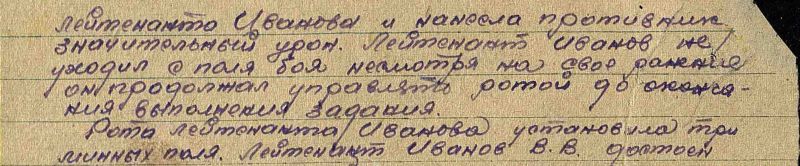 лейтенанта Иванова и нанесла противник
значительный урон. Лейтенант Иванов не
уходил с поля боя несмотря на свое ранение
он продолжал управлять ротой до оконча-
ния выполнения задания.
Рота лейтенанта Иванова установила три
минных поля. Лейтенант Иванов В.В. достоен